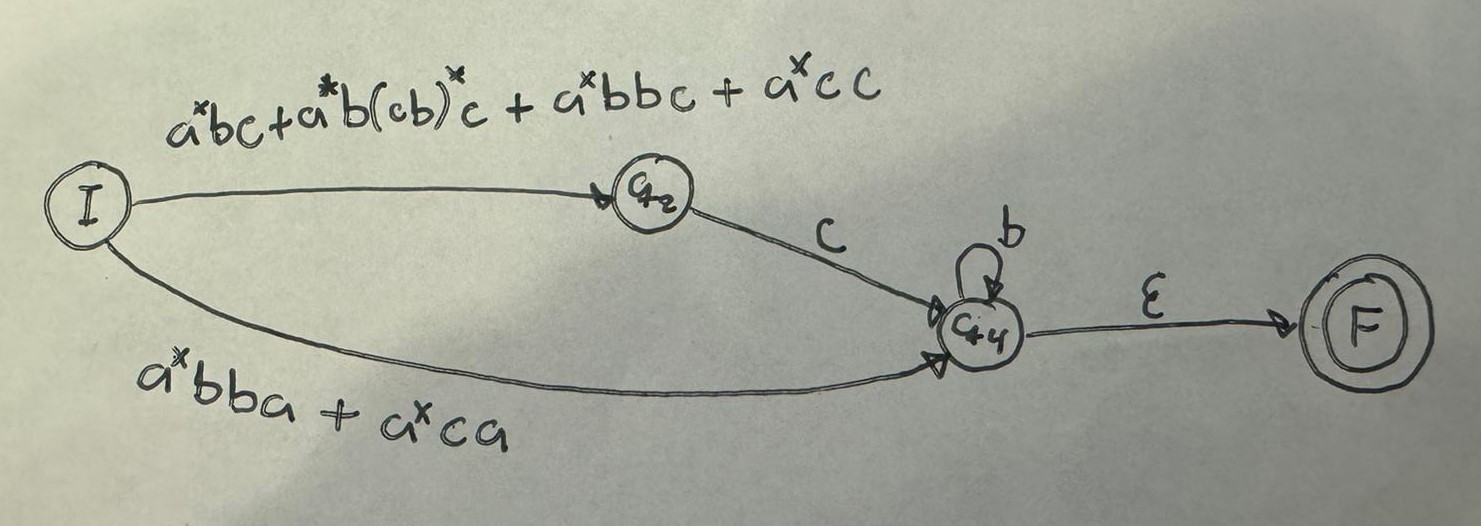 a*bc+a*b(cb)*c + a*bbc + a*cc
I
q₂
c
b
q₄
ε
F
a*bba + a*ca